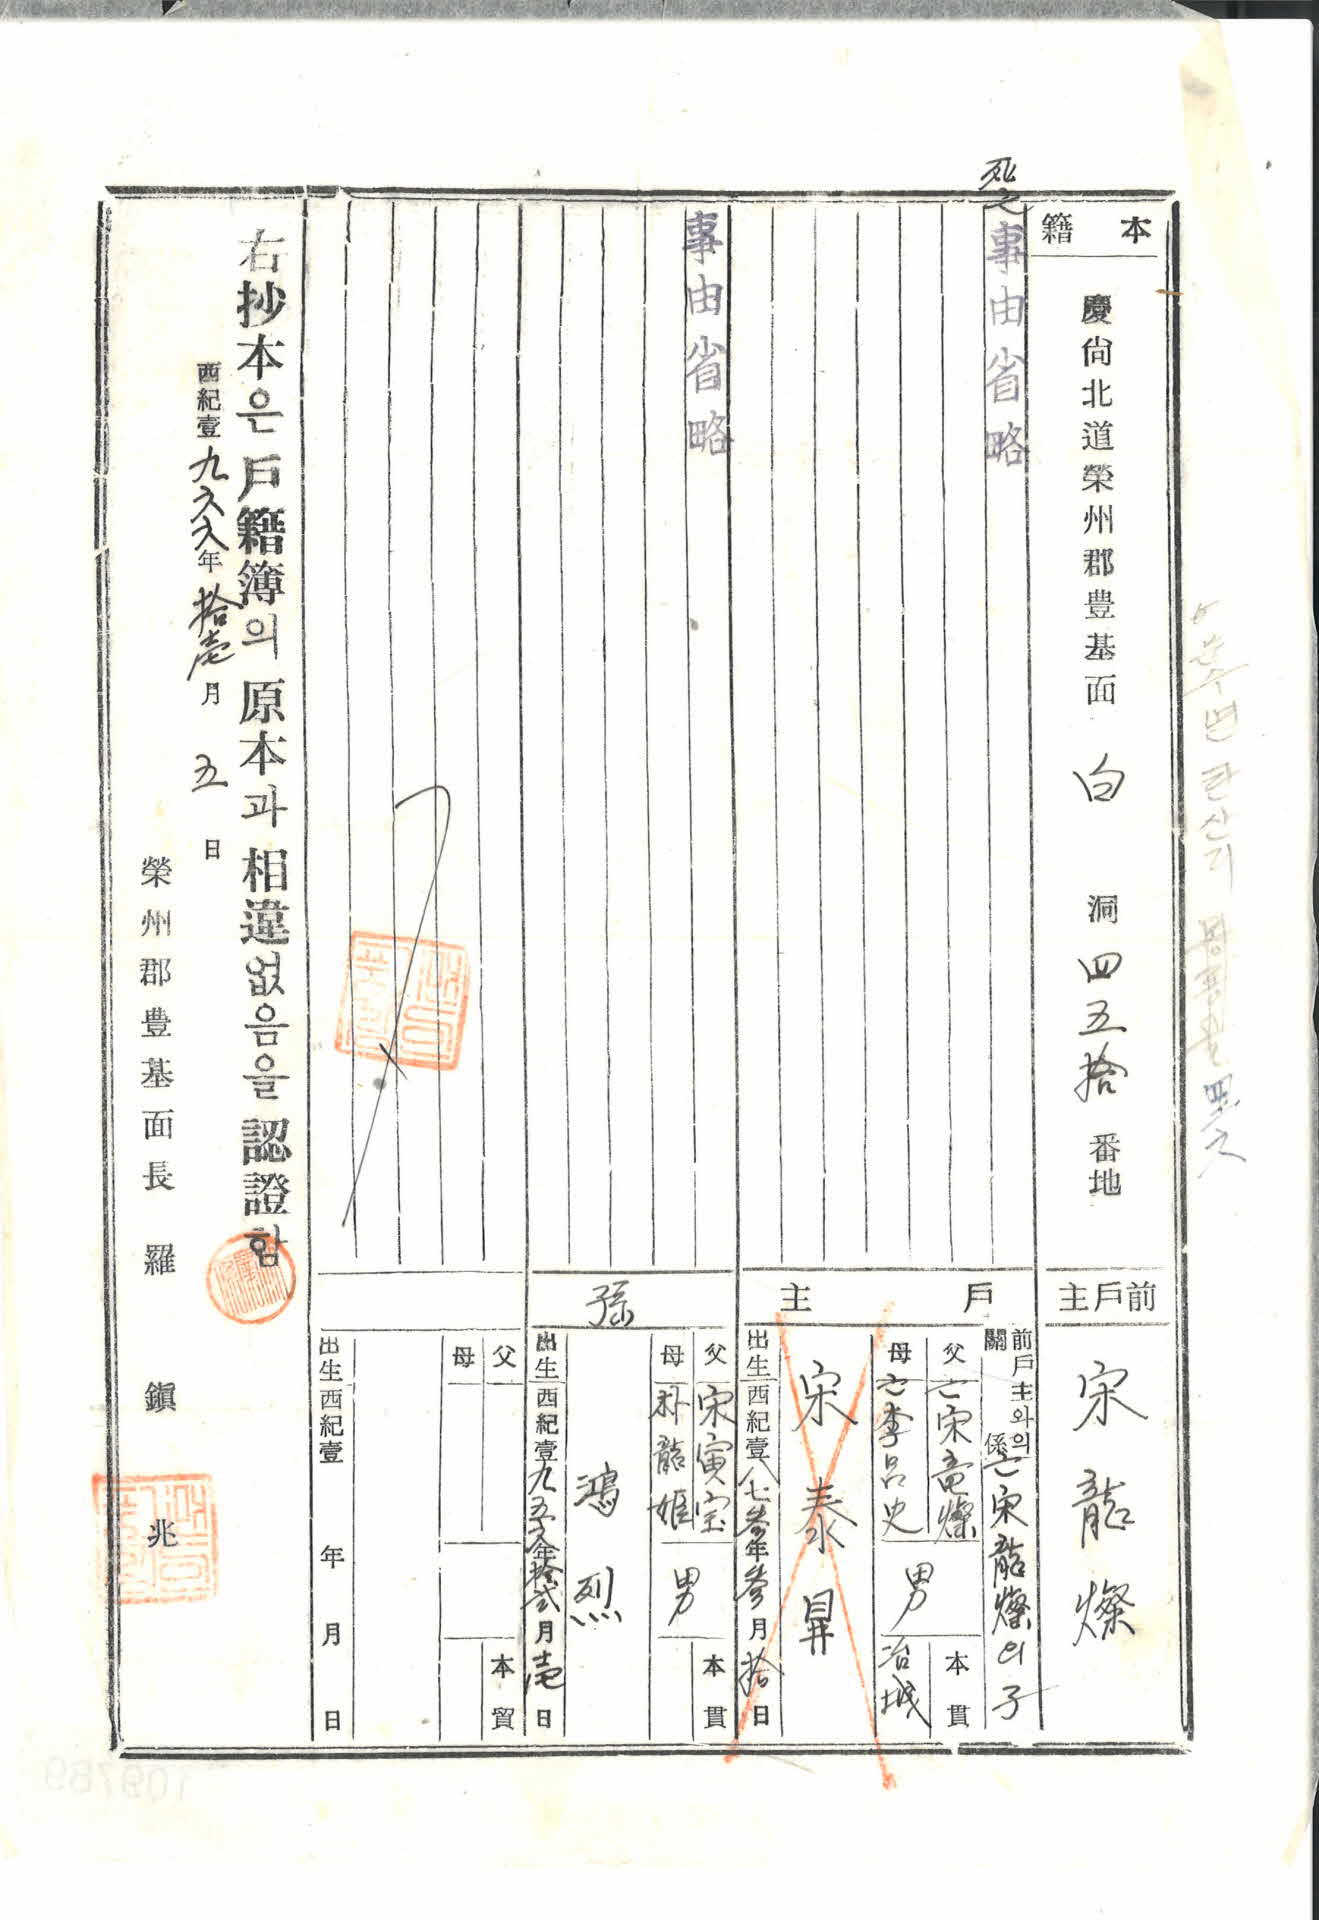 死亡
本籍
慶尙北道榮州郡豊基面 白 洞 四五拾 番地
前戶主
宋龍燦
事由省略
戶主
前戶主와의關係
亡宋龍燦의子
父
亡宋竜燦
母
亡李召史
男
本貫
冶城
宋泰昇
出生
西紀壹八七参年参月拾日
事由省略
孫
父
宋寅宝
母
朴龍姬
男
本貫
鴻烈
出生
西紀壹九五六年拾弐月壱日
父
母
本貫
出生
西紀壹 年 月 日
右抄本은戶籍簿의原本과相違없음을認證함
西紀壹九六八年 拾壱月 五日
榮州郡豊基面長 羅鎭兆
109789